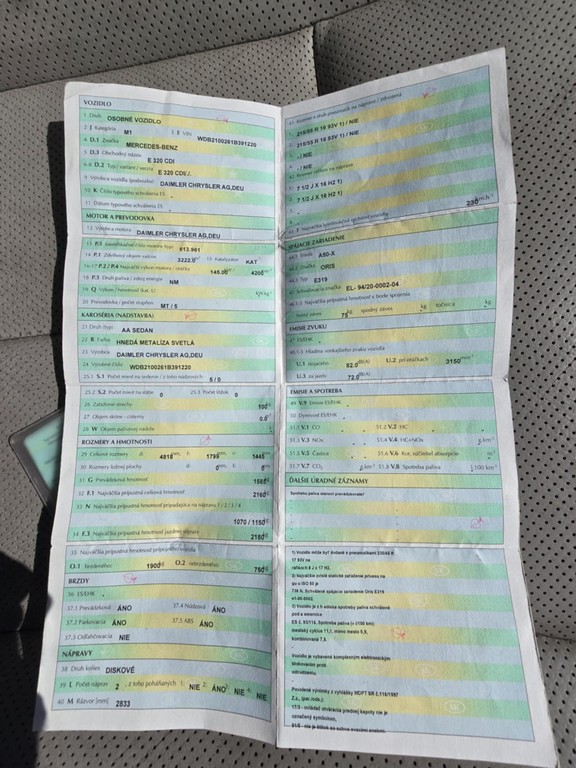 VOZIDLO
1 Druh OSOBNÉ VOZIDLO
2 J Kategória M1 3 E VIN WDB2100261B391220
4 D.1 Značka MERCEDES-BENZ
5 D.3 Obchodný názov E 320 CDI
6-8 D.2 Typ / variant / verzia E 320 CDI/./.
9 Výrobca vozidla (podvozku) DAIMLER CHRYSLER AG,DEU
10 K Číslo typového schválenia ES -
11 Dátum typového schválenia ES -
MOTOR A PREVODOVKA
12 Výrobca motora DAIMLER CHRYSLER AG,DEU
13 P.5 Identifikačné číslo motora (typ) 613.961
14 P.1 Zdvihový objem valcov 3222.0 cm³ 15 Katalyzátor KAT
16-17 P.2 / P.4 Najväčší výkon motora / otáčky 145.00 4200
18 P.3 Druh paliva / zdroj energie NM
19 Q Výkon / hmotnosť (kat. L) - kW/kg-1
20 Prevodovka / počet stupňov MT / 5
KAROSÉRIA (NADSTAVBA)
21 Druh (typ) AA SEDAN
22 R Farba HNEDÁ METALÍZA SVETLÁ
23 Výrobca DAIMLER CHRYSLER AG,DEU
24 Výrobné číslo WDB2100261B391220
25.1 S.1 Počet miest na sedenie / z toho núdzových 5 / 0
25.2 S.2 Počet miest na státie 0 25.3 Počet lôžok 0
26 Zaťaženie strechy 100 kg
27 Objem skrine - cisterny 0.0
28 W Objem palivovej nádrže -
ROZMERY A HMOTNOSTI
29 Celkové rozmery d: 4818 mm, š: 1799 mm, v: 1445
30 Rozmery ložnej plochy d: 0 mm, š: 0
31 G Prevádzková hmotnosť
32 F.1 Najväčšia prípustná celková hmotnosť 2160
33 N Najväčšia prípustná hmotnosť pripadajúca na nápravu 1 / 2 / 3 / 4
1070 / 1150
34 F.3 Najväčšia prípustná hmotnosť jazdnej súpravy
35 Najväčšia prípustná hmotnosť prípojného vozidla
O.1 brzdeného 1900 kg O.2 nebrzdeného 750 kg
BRZDY
36 ES/EHK -
37.1 Prevádzková ÁNO 37.4 Núdzová ÁNO
37.2 Parkovacia ÁNO 37.5 ABS ÁNO
37.3 Odľahčovacia NIE
NÁPRAVY
38 Druh kolies DISKOVÉ
39 L Počet náprav 2 , z toho poháňaných 1: NIE 2: ÁNO 3: NIE 4: NIE
40 M Rázvor [mm] 2833
41 Rozmery a druh pneumatík na náprave / zdvojená
1. 215/55 R 16 93V 1) / NIE
2. 215/55 R 16 93V 1) / NIE
3. - / NIE
4. - / NIE
42 Rozmer ráfikov na náprave
1. 7 1/2 J X 16 H2 1)
2. 7 1/2 J X 16 H2 1)
3. -
44 T Najväčšia konštrukčná rýchlosť vozidla 230 km.h-1
SPÁJACIE ZARIADENIE
Trieda A50-X
Značka ORIS
Typ E319
Schvaľovacia značka EL- 94/20-0002-04
Najväčšia prípustná hmotnosť v bode spojenia
horný záves 75 kg spodný záves - kg točnica - kg
EMISIE ZVUKU
47 ES/EHK -
Hladina vonkajšieho zvuku vozidla
U.1 stojaceho 82.0 dB(A) U.2 pri otáčkach 3150 min-1
U.3 za jazdy 72.0 dB(A)
EMISIE A SPOTREBA
49 V.9 Emisie ES/EHK -
50 Dymivosť ES/EHK -
51.1 V.1 CO 51.2 V.2 HC
51.3 V.3 NOx 51.4 V.4 HC+NOx g.km-1
51.5 V.5 Častice 51.6 V.6 Kor. súčiniteľ absorpcie m-1
51.7 V.7 CO2 g.km-1 51.8 V.8 Spotreba paliva l/100 km-1
ĎALŠIE ÚRADNÉ ZÁZNAMY
Spotrebu paliva stanoví prevádzkovateľ
1) Vozidlo môže byť dodané s pneumatikami 235/45 R
17 93V na
ráfikoch 8 J x 17 H2.
2) Najväčšie zvislé statické zaťaženie prívesu na
gu o ISO 50 je
736 N. Schválené spájacie zariadenie Oris E319
e1-00-0002.
3) Vozidlo je s h odnota spotreby paliva schválené
pod a smernice
ES č. 93/116. Spotreba paliva v (l/100 km)
mestský cyklus 11,1, mimo mesto 5,9,
kombinovaná 7,8
Vozidlo je vybavené komplexným elektronickým
blokovaním proti
odcudzeniu
Povolené výnimky z vyhlášky MDPT SR č.116/1997
Z.z., (par./ods.):
17/3 - ovládač otvárania prednej kapoty nie je
označený symbolom,